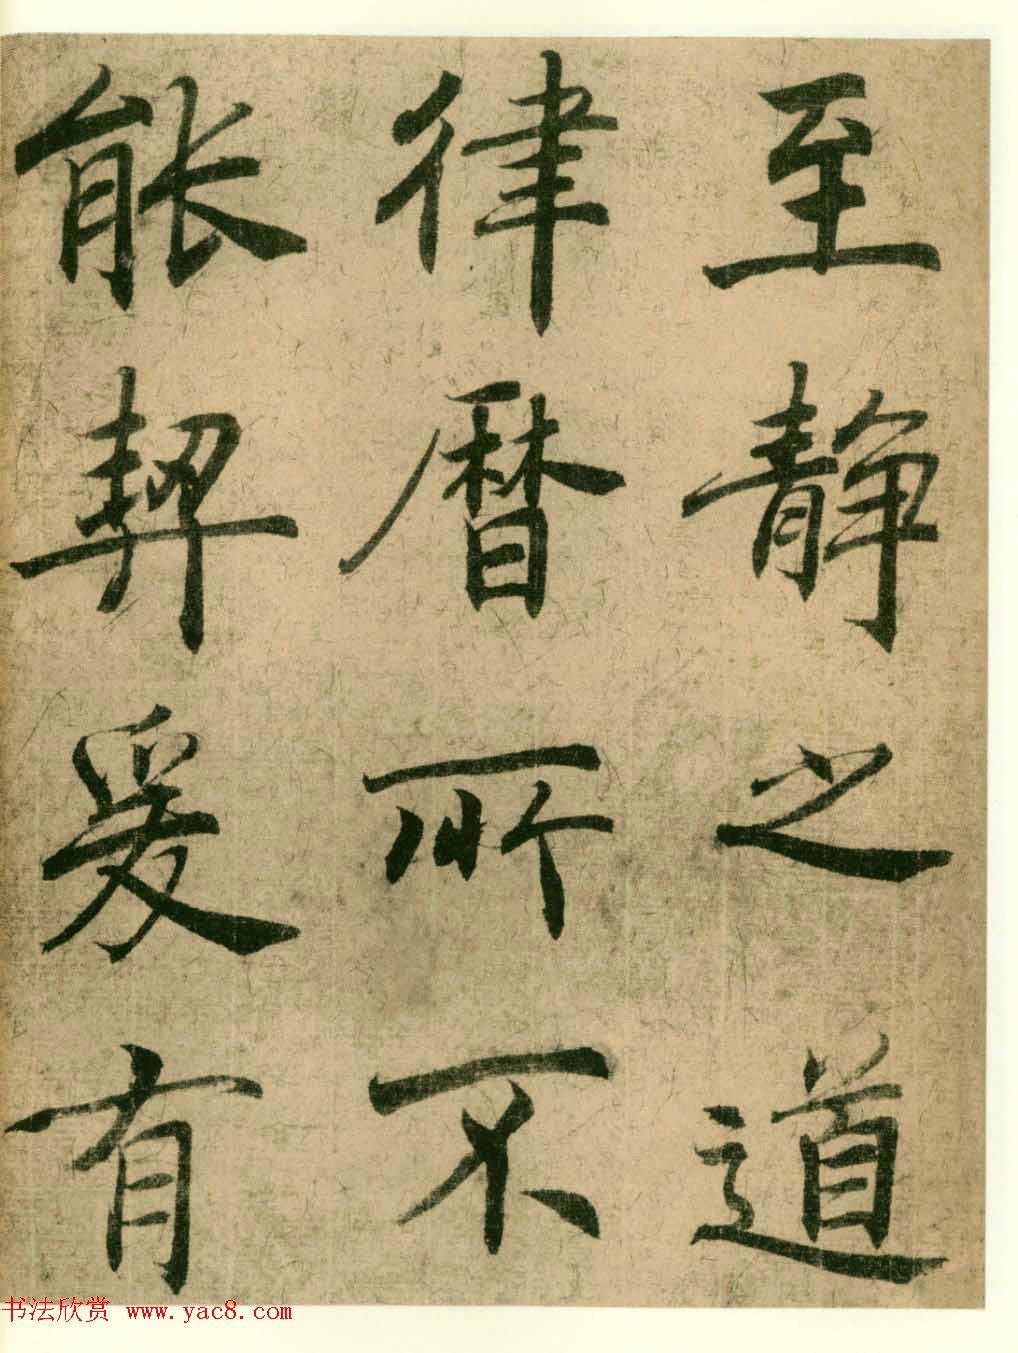 至静之道
律暦所不
能契爰有
书法欣赏 www.yac8.com